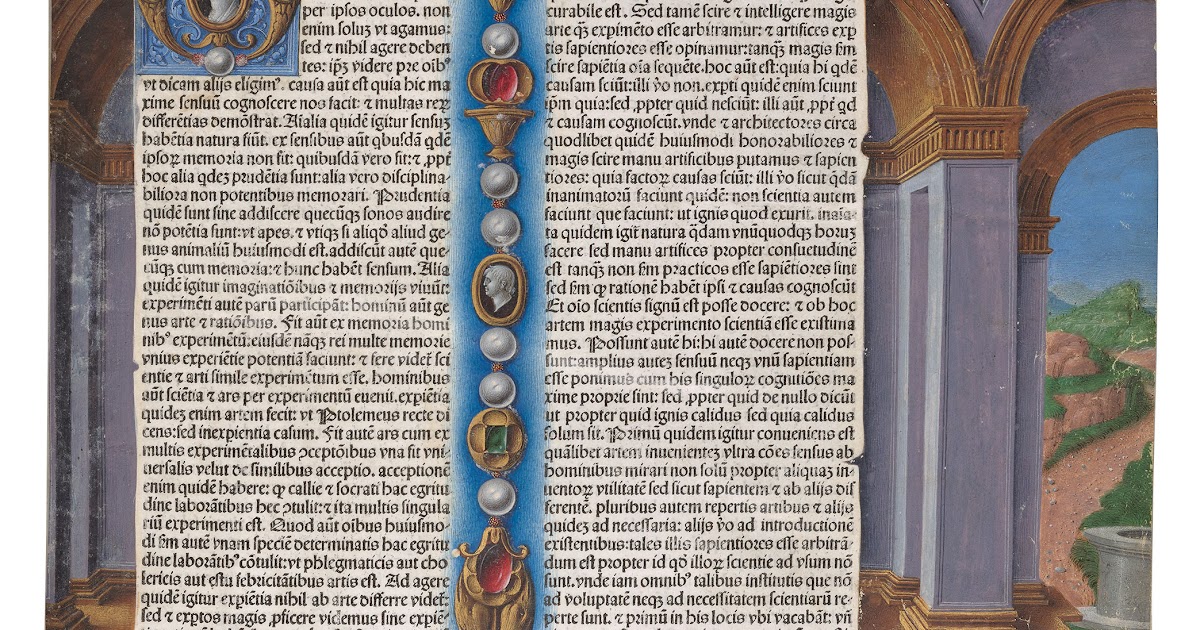 per ipsos oculos. non
enim soluʒ vt agamus:
sed ⁊ nihil agere deben
tes: ipʒ videre pre oibꝰ
vt dicam alijs eligimꝰ. causa aũt est quia hic ma
xime sensuũ cognoscere nos facit: ⁊ multas reꝝ
differẽtias demõstrat. Aialia quidẽ igitur sensuʒ
habẽtia natura fiũt. ex sensibus aũt qbusdã qdẽ
ipsoꝝ memoria non fit: quibusdã vero fit: ⁊ ꝓpt̃
hoc alia qdeʒ prudẽtia sunt: alia vero disciplina-
biliora non potentibus memorari. Prudentia
quidẽ sunt sine addiscere quecũqʒ sonos audire
nõ potẽtia sunt: vt apes. ⁊ vtiqʒ si aliqđ aliud ge-
nus animaliũ huiusmodi est. addiscũt autẽ que-
cũqʒ cum memoria: ⁊ hunc habẽt sensum. Alia
quidẽ igitur imaginatiõibus ⁊ memorijs viuũt:
experimẽti autẽ parũ participãt: hominũ aũt ge
nus arte ⁊ ratiõibus. Fit aũt ex memoria homi
nibꝰ experimẽtũ: eiusdẽ nãqʒ rei multe memorie
vnius experiẽtie potentiã faciunt: ⁊ fere videt̃ sci
entie ⁊ arti simile experimẽtum esse. hominibus
aũt sciẽtia ⁊ ars per experimentũ euenit. expiẽtia
quideʒ enim artem fecit: vt Ptolemeus recte di
cens: sed inexpientia casum. Fit autẽ ars cum ex
multis experimẽtalibus ↄceptõibus vna fit vni-
uersalis velut de similibus acceptio. acceptionẽ
enim quidẽ habere: qꝫ callie ⁊ socrati hac egritu
dine laborãtibus hec ↄtulit: ⁊ ita multis singula
riũ experimenti est. Quod aũt oibus huiusmo-
di ẜm autẽ vnam speciẽ determinatis hac egritu
dine laborãtibꝰ cõtulit: vt phlegmaticis aut cho
lericis aut estu febricitãtibus artis est. Ad agere
quidẽ igitur expiẽtia nihil ab arte differre videt̃:
sed ⁊ exptos magis ꝓficere videmus sine expiẽ
curabile est. Sed tamẽ scire ⁊ intelligere magis
arte qʒ̃ expimẽto esse arbitramur: ⁊ artifices exp
tis sapientiores esse opinamur: tanqʒ magis ẜm
scire sapiẽtia oia sequẽte. hoc aũt est: quia hi qdẽ
causam sciũt: illi ꝟo non. expti quidẽ enim sciunt
ipm quia: sed ꝓpter quid nesciũt: illi aũt ꝓpt̃ qđ
⁊ causam cognoscũt. vnde ⁊ architectores circa
quodlibet quidẽ huiusmodi honorabiliores ⁊
magis scire manu artificibus putamus ⁊ sapien
tiores: quia factoꝝ causas sciũt: illi ꝟo sicut qdã
inanimatorũ faciunt quidẽ: non scientia autem
faciunt que faciunt: ut ignis quod exurit. inaia-
ta quidem igit̃ natura qdam vnũquodqʒ horuʒ
facere sed manu artifices propter consuetudinẽ
est tanqʒ̃ non ẜm practicos esse sapiẽtiores sint
sed ẜm ꝙ rationẽ habẽt ipsi ⁊ causas cognoscũt
Et oĩo scientis signũ est posse docere: ⁊ ob hoc
artem magis experimento scientiã esse existima
mus. Possunt autẽ hi: hi autẽ docere non pos-
sunt: amplius auteʒ sensuũ neqʒ vnũ sapientiam
esse ponimus cum his singuloꝝ cognitiões ma
xime proprie sint: sed ꝓpter quid de nullo dicũt
ut propter quid ignis calidus sed quia calidus
solum sit. Primũ quidem igitur conueniens est
quãlibet artem inuenienteʒ vltra cões sensus ab
hominibus mirari non solũ propter aliquaʒ in-
uentoꝝ vtilitatẽ sed sicut sapientem ⁊ ab alijs dif
ferentẽ. pluribus autem repertis artibus ⁊ alijs
quideʒ ad necessaria: alijs ꝟo ad introductionẽ
existentibus: tales illis sapientiores esse arbitrã-
dum est propter id qđ illoꝝ scientie ad vsum nõ
sunt. vnde iam omnibꝰ talibus institutis que nõ
ad voluptatẽ neqʒ ad necessitatem scientiarũ re-
perte sunt. ⁊ primũ in his locis vbi vacabãt: vñ